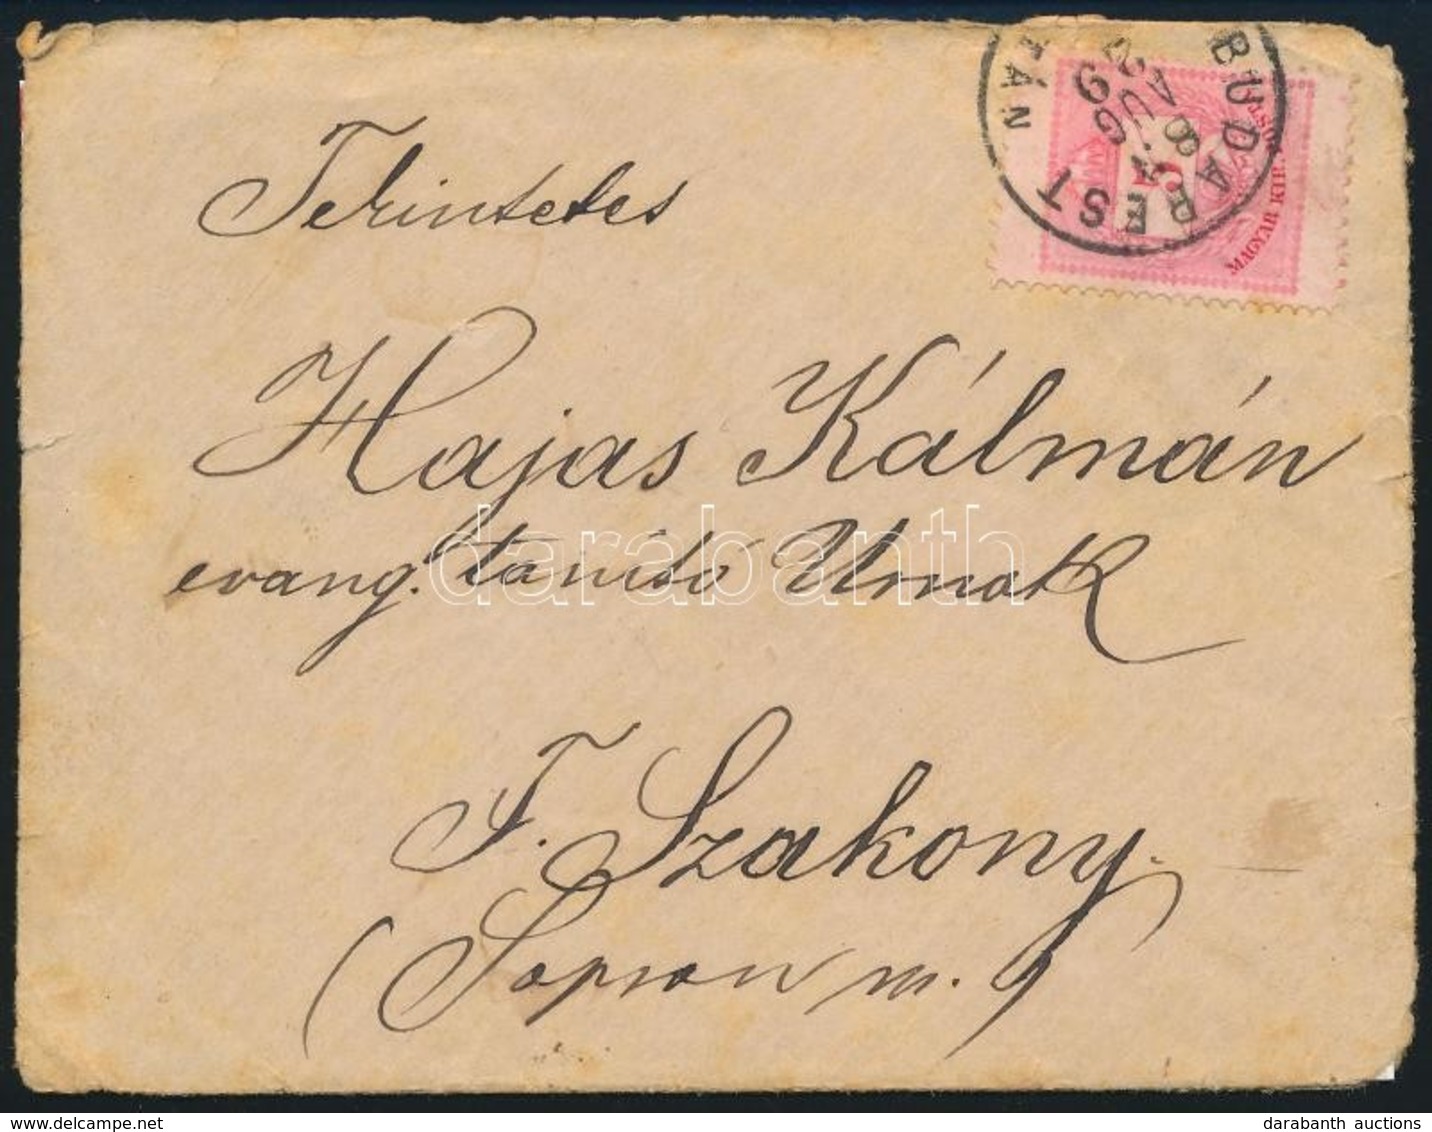 BUDAPEST
TÁN
29
AUG
8
5
MAGYAR KIR. POSTA
Tekintetes
Hajas Kálmán
evang. tanító Urnak
darabanth
F. Szakony.
(Sopron m.)
darabanth auctions